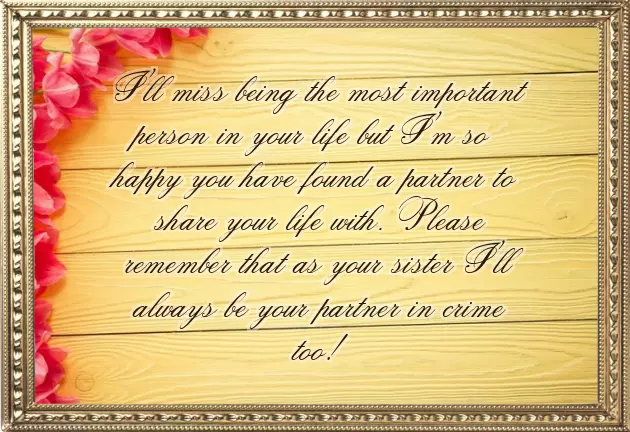 I'll miss being the most important
person in your life but I'm so
happy you have found a partner to
share your life with. Please
remember that as your sister I'll
always be your partner in crime
too!